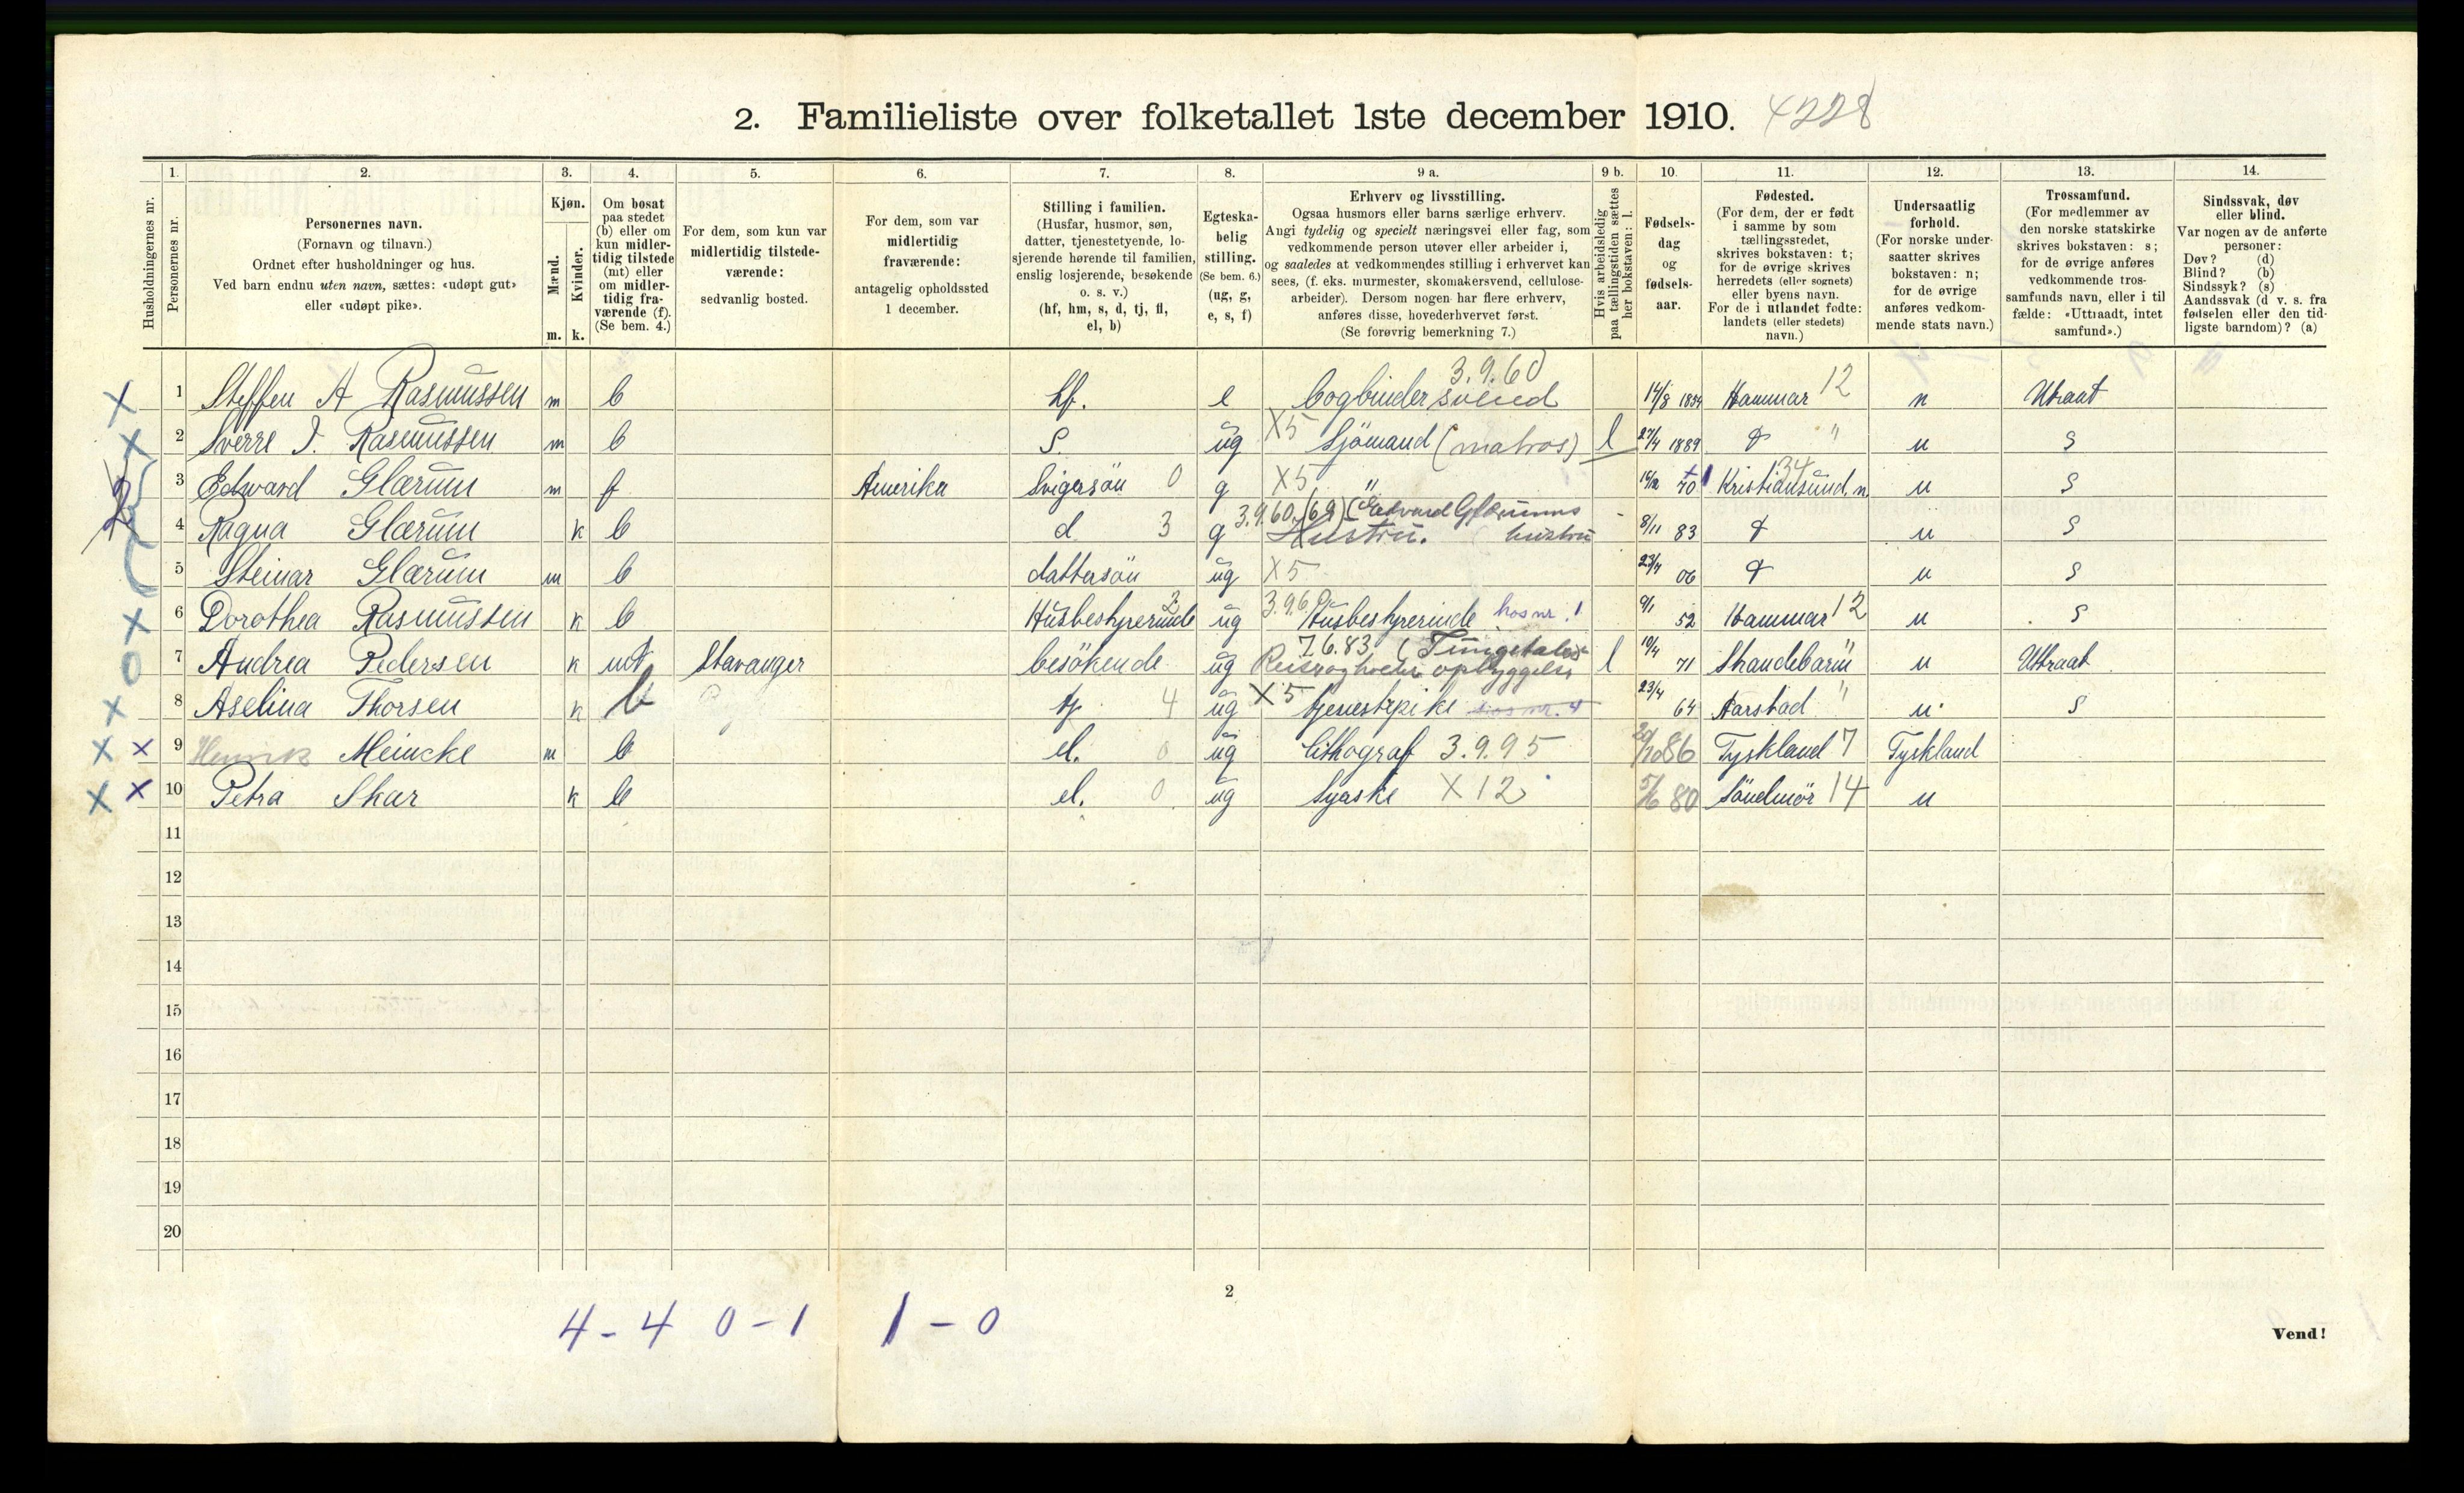 2. Familieliste over folketallet 1ste december 1910. 4228
Husholdningernes nr.
1. Personernes nr.
2. Personernes navn.
(Fornavn og tilnavn.)
Ordnet efter husholdninger og hus.
Ved barn endnu uten navn, sættes: «udøpt gut»
eller «udøpt pike».
3. Kjøn.
Mænd. Kvinder.
m. k.
4. Om bosat
paa stedet
(b) eller om
kun midler-
tidig tilstede
(mt) eller
om midler-
tidig fra-
værende (f).
(Se bem. 4.)
5. For dem, som kun var
midlertidig tilstede-
værende:
sedvanlig bosted.
6. For dem, som var
midlertidig
fraværende:
antagelig opholdssted
1 december.
7. Stilling i familien.
(Husfar, husmor, søn,
datter, tjenestetyende, lo-
sjerende hørende til familien,
enslig losjerende, besøkende
o. s. v.)
(hf, hm, s, d, tj, fl,
el, b)
8. Egteska-
belig
stilling.
(Se bem. 6.)
(ug, g,
e, s, f)
9 a. Erhverv og livsstilling.
Ogsaa husmors eller barns særlige erhverv.
Angi tydelig og specielt næringsvei eller fag, som
vedkommende person utøver eller arbeider i,
og saaledes at vedkommendes stilling i erhvervet kan
sees, (f. eks. murmester, skomakersvend, cellulose-
arbeider). Dersom nogen har flere erhverv,
anføres disse, hovederhvervet først.
(Se forøvrig bemerkning 7.)
9 b. Hvis arbeidsledig
paa tællingstiden sættes
her bokstaven: l.
10. Fødsels-
dag
og
fødsels-
aar.
11. Fødested.
(For dem, der er født
i samme by som
tællingsstedet,
skrives bokstaven: t;
for de øvrige skrives
herredets (eller sognets)
eller byens navn.
For de i utlandet fødte:
landets (eller stedets)
navn.)
12. Undersaatlig
forhold.
(For norske under-
saatter skrives
bokstaven: n;
for de øvrige
anføres vedkom-
mende stats navn.)
13. Trossamfund.
(For medlemmer av
den norske statskirke
skrives bokstaven: s;
for de øvrige anføres
vedkommende tros-
samfunds navn, eller i til
fælde: «Uttraadt, intet
samfund».)
14. Sindssvak, døv
eller blind.
Var nogen av de anførte
personer:
Døv? (d)
Blind? (b)
Sindssyk? (s)
Aandssvak (d v. s. fra
fødselen eller den tid-
ligste barndom)? (a)
3.9.60
X 1 Steffen A Rasmussen m b hf. e bogbindersvend 14/8 1834 Hammar 12 n Utraat
X 2 Sverre J. Rasmussen m b s. ug X5 Sjömand (matros) l 27/4 1889 t " n s
3 Edward Glærum m f Amerika Svigersön 0 g X5 " 70 Kristiansund n. 34 n s
3.9.60 (69) (Edvard Glærums
4 Ragna Glærum k b d 3 g Hustru. hustru 8/11 83 t n s
5 Steinar Glærum m b dattersön ug X5 23/4 06 t n s
X 6 Dorothea Rasmussen k b Husbestyrerinde 2 ug 3.9.60 Husbestyrerinde hos nr. 1 9/1 52 Hammar 12 n s
7.6.83 (Tungetaler
0 7 Andrea Pedersen k mt Stavanger besökende ug opbyggelse l 10/4 71 n Utraat
X 8 Aselina Thorsen k b tj 4 ug X5 tjenestepike hos nr. 4 23/4 64 Aarstad " n s
X X 9 Henrik Meincke m b el. 0 ug lithograf 3.9.95 20/10 86 Tyskland 7 Tyskland
X X 10 Petra Skar k b el. 0 ug Syerske X12 5/6 80 Söndmör 14 n
11
12
13
14
15
16
17
18
19
20
2
4 - 4 0 - 1 1 - 0
Vend!